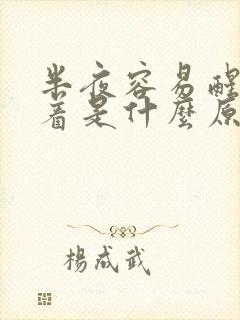 半夜容易醒
着是什麼原
楊成武